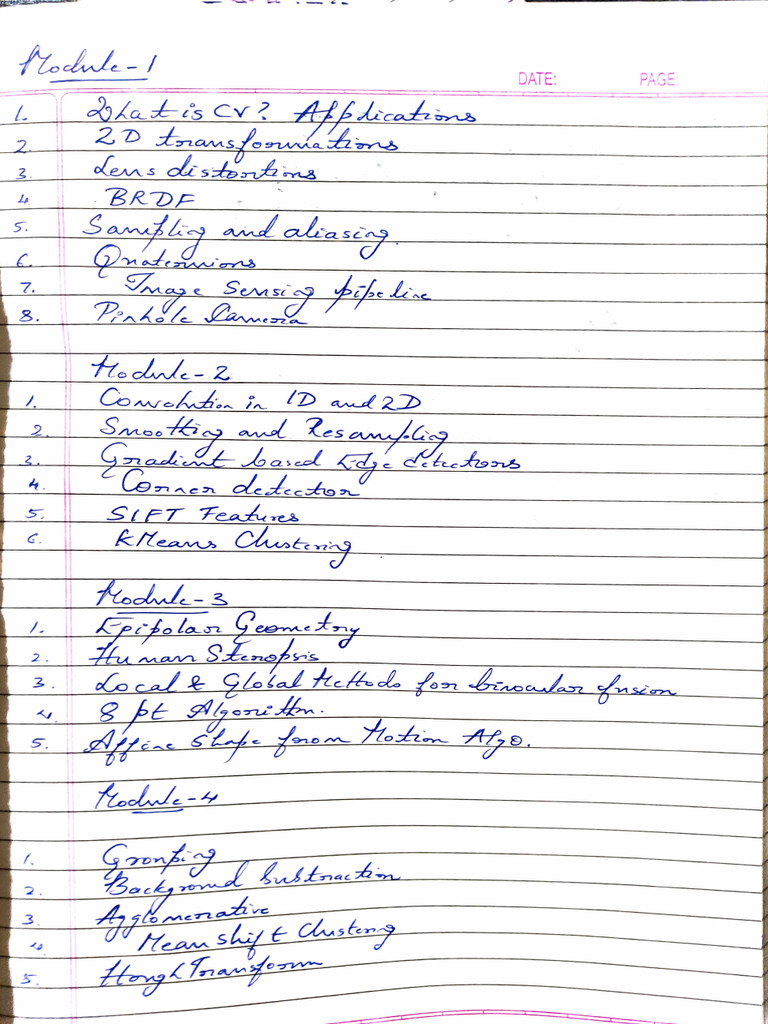 Module-1
DATE: PAGE:
1. What is CV? Applications
2. 2D transformations
3. Lens distortions
4. BRDF
5. Sampling and aliasing.
6. Quaternions
7. Image Sensing pipeline
8. Pinhole Camera
Module-2
1. Convolution in 1D and 2D
2. Smoothing and Resampling
3. Gradient based Edge detectors
4. Corner detector
5. SIFT Features
6. KMeans Clustering
Module-3
1. Epipolar Geometry
2. Human Stereopsis
3. Local & Global Methods for binocular fusion
4. 8 pt Algorithm.
5. Affine shape from Motion Algo.
Module-4
1. Grouping
2. Background Subtraction
3. Agglomerative
4. Mean shift Clustering
5. Hough Transform